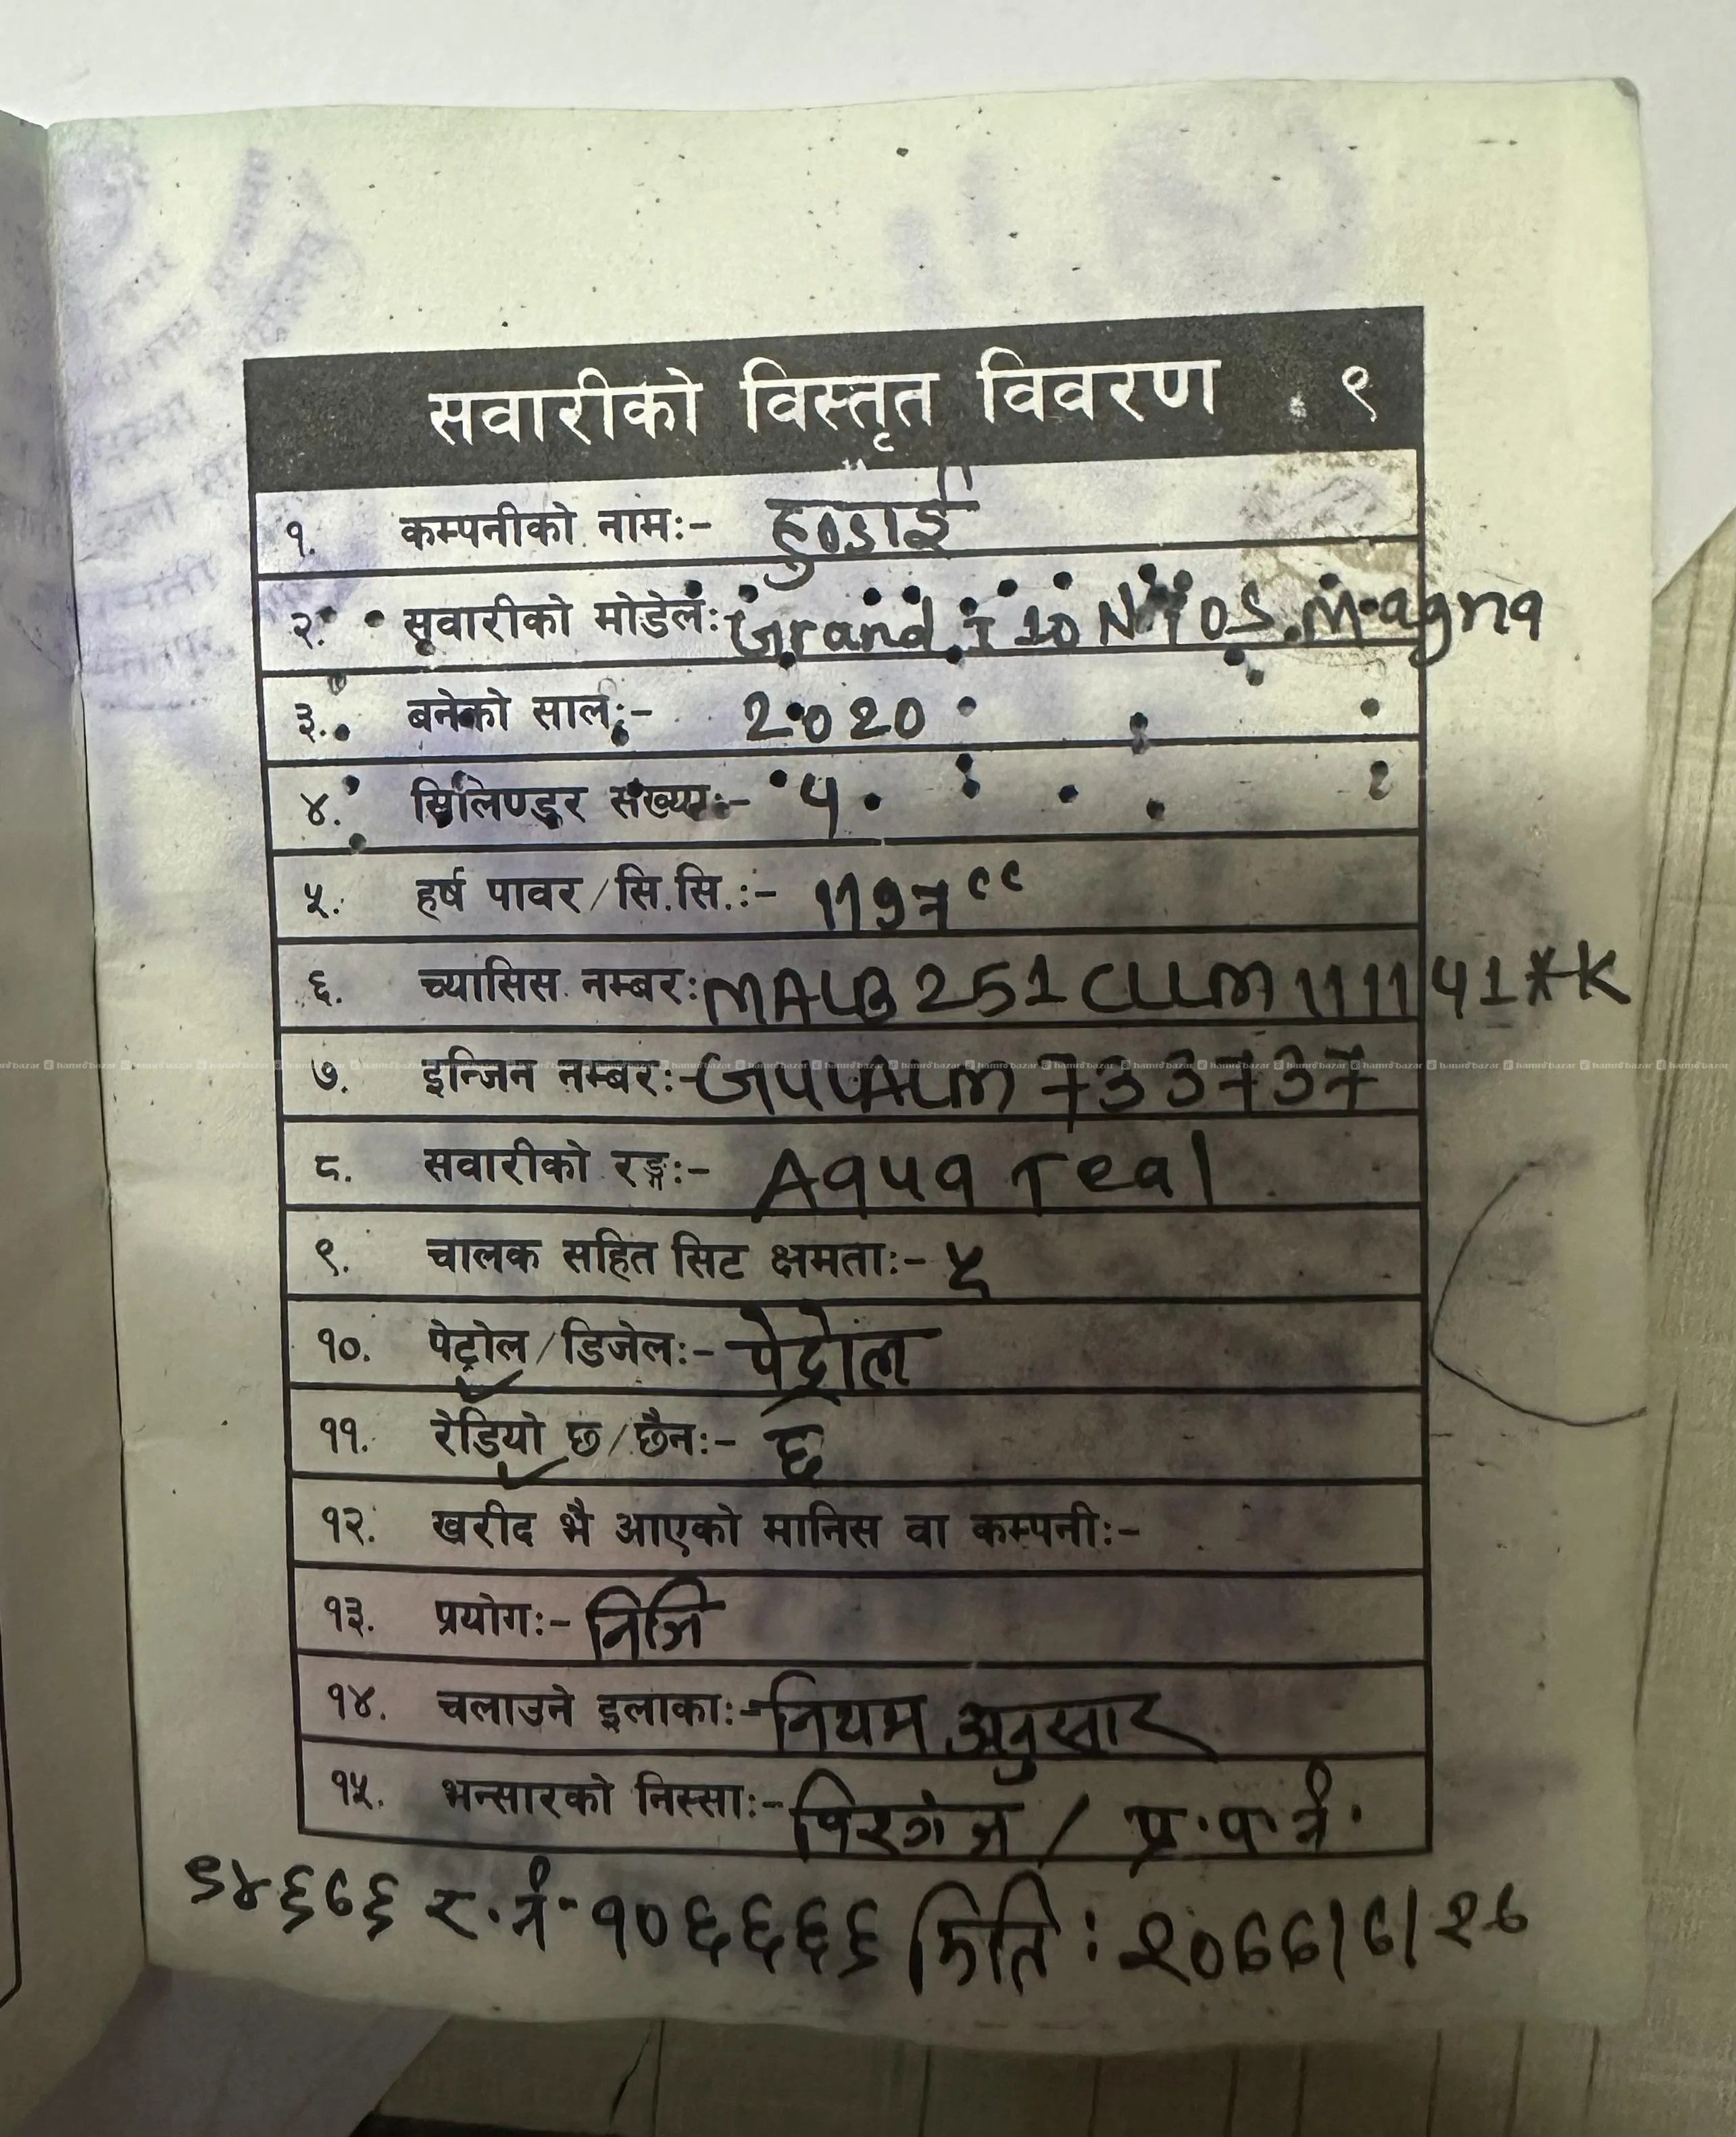 सवारीको विस्तृत विवरण ९
१. कम्पनीको नामः- हुण्डाई
२. सवारीको मोडेलः Grand I 10 NIOS Magna
३. बनेको सालः- 2020
४. सिलिण्डर संख्याः- 4
५. हर्ष पावर/सि.सि.:- 1197cc
६. च्यासिस नम्बरः MALB251CLLM111141*K
७. इन्जिन नम्बरः- G4LALM733737
८. सवारीको रङ्गः- Aqua Teal
९. चालक सहित सिट क्षमताः- ५
१०. पेट्रोल/डिजेलः- पेट्रोल
११. रेडियो छ/छैनः- छ
१२. खरीद भै आएको मानिस वा कम्पनीः-
१३. प्रयोगः- निजि
१४. चलाउने इलाकाः- नियम अनुसार
१५. भन्सारको निस्साः- विरगंज / प्र.प.नं.
र.नं- १०६६६६ मिति: २०७७/७/२७
hamrobazar